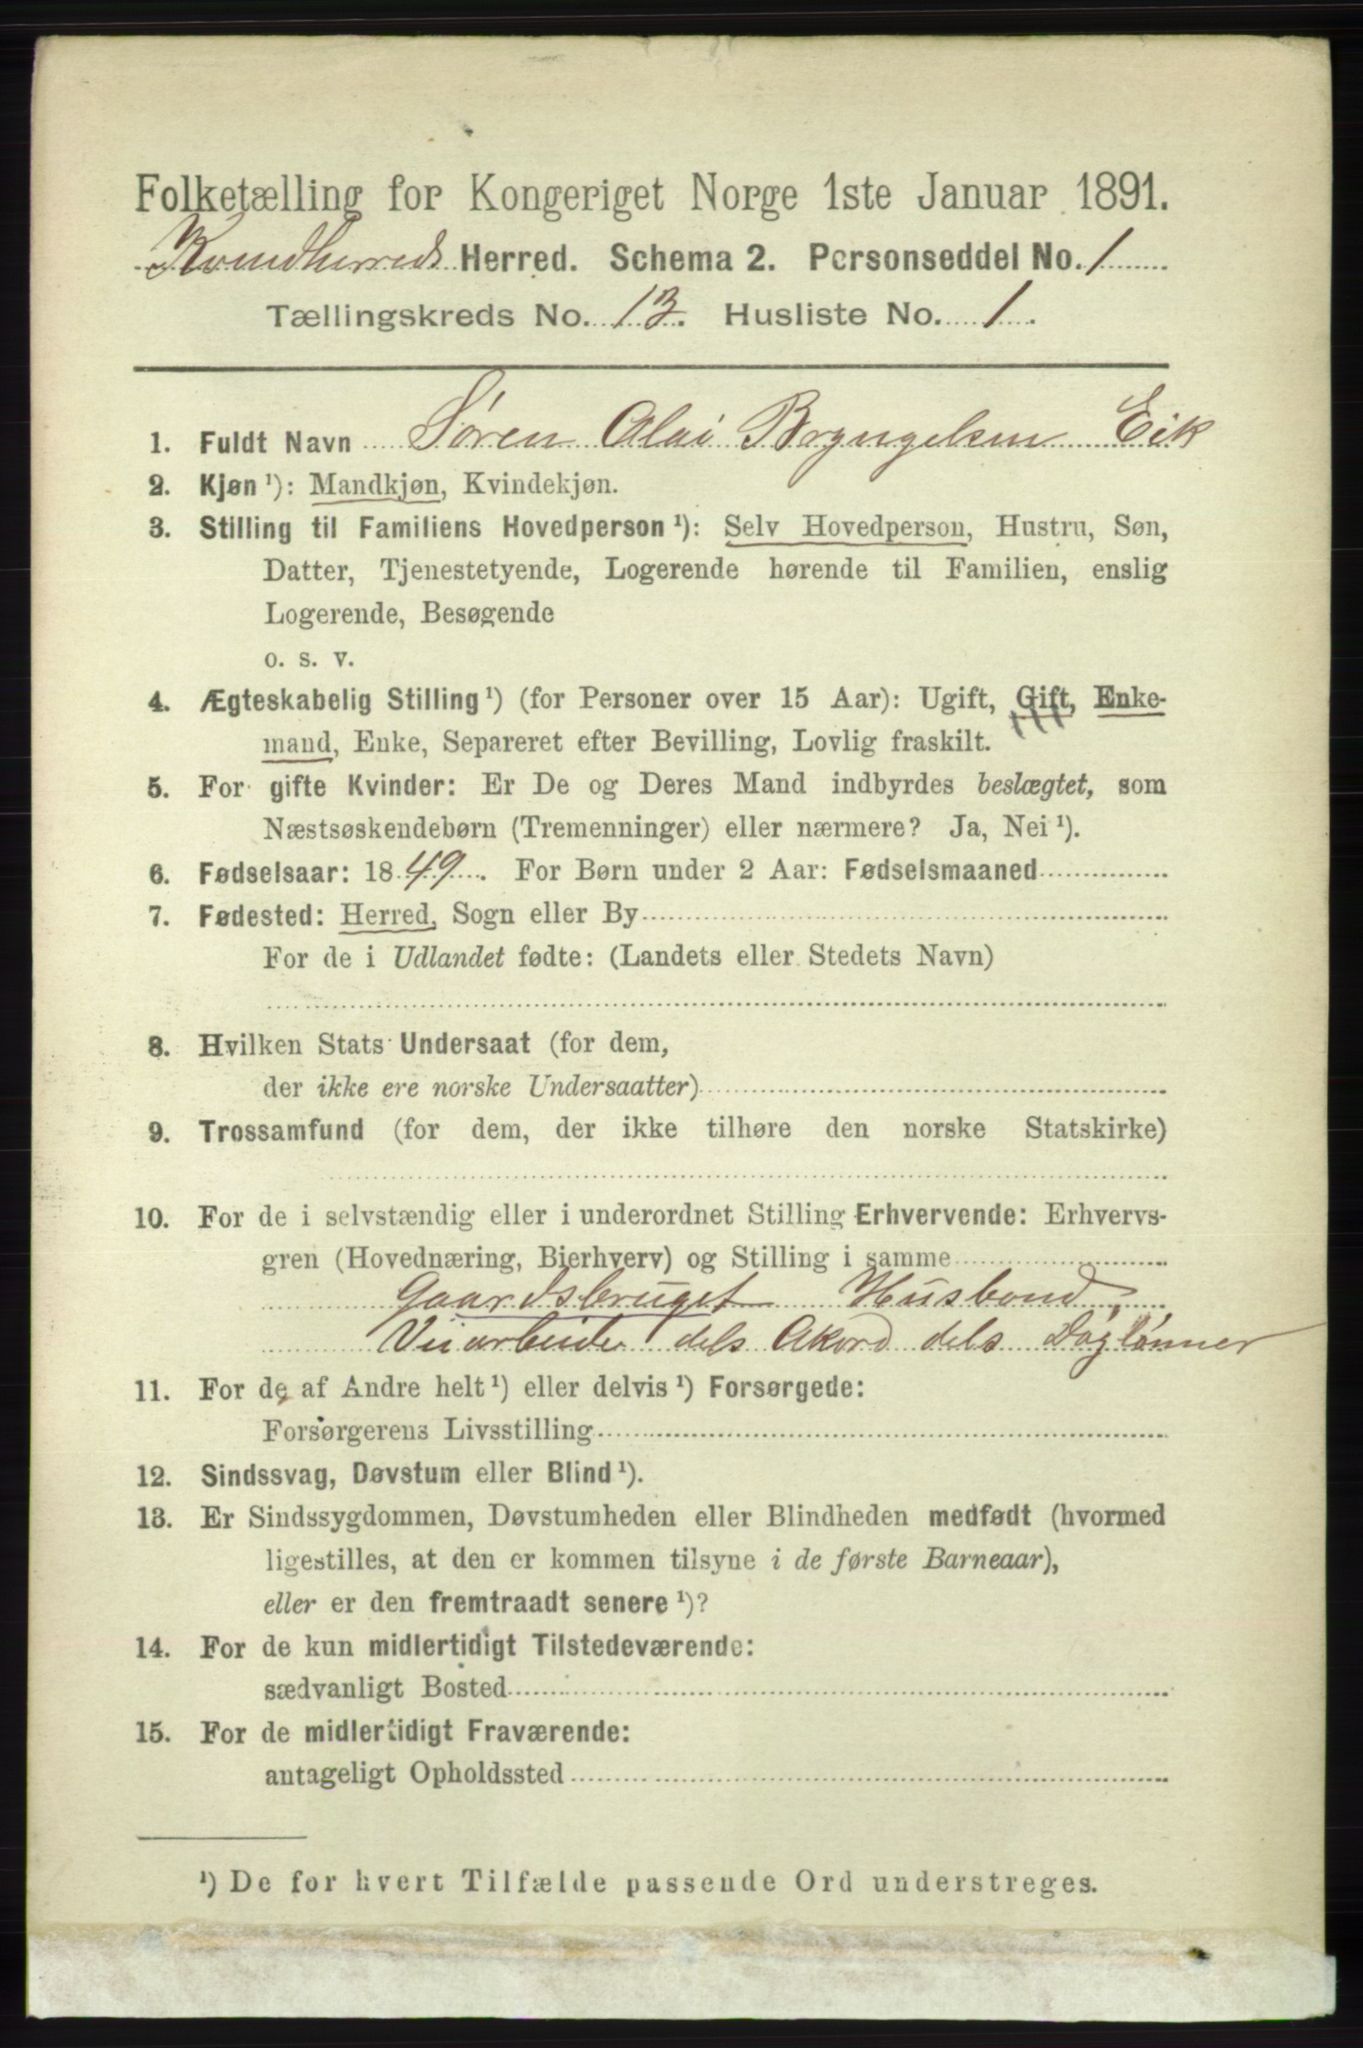 Folketælling for Kongeriget Norge 1ste Januar 1891.
Kvindherreds Herred. Schema 2. Personseddel No. 1
Tællingskreds No. 13. Husliste No. 1.
1. Fuldt Navn Søren Olai Bryngelsen Eik
2. Kjøn ¹): Mandkjøn, Kvindekjøn.
3. Stilling til Familiens Hovedperson ¹): Selv Hovedperson, Hustru, Søn,
Datter, Tjenestetyende, Logerende hørende til Familien, enslig
Logerende, Besøgende
o. s. v.
4. Ægteskabelig Stilling ¹) (for Personer over 15 Aar): Ugift, Gift, Enke-
mand, Enke, Separeret efter Bevilling, Lovlig fraskilt.
5. For gifte Kvinder: Er De og Deres Mand indbyrdes beslægtet, som
Næstsøskendebørn (Tremenninger) eller nærmere? Ja, Nei ¹).
6. Fødselsaar: 1849. For Børn under 2 Aar: Fødselsmaaned
7. Fødested: Herred, Sogn eller By
For de i Udlandet fødte: (Landets eller Stedets Navn)
8. Hvilken Stats Undersaat (for dem,
der ikke ere norske Undersaatter)
9. Trossamfund (for dem, der ikke tilhøre den norske Statskirke)
10. For de i selvstændig eller i underordnet Stilling Erhvervende: Erhvervs-
gren (Hovednæring, Bierhverv) og Stilling i samme
Gaardsbruget Husbond,
Veiarbeide dels Akord dels Daglønner
11. For de af Andre helt ¹) eller delvis ¹) Forsørgede:
Forsørgerens Livsstilling
12. Sindssvag, Døvstum eller Blind ¹).
13. Er Sindssygdommen, Døvstumheden eller Blindheden medfødt (hvormed
ligestilles, at den er kommen tilsyne i de første Barneaar),
eller er den fremtraadt senere ¹)?
14. For de kun midlertidigt Tilstedeværende:
sædvanligt Bosted
15. For de midlertidigt Fraværende:
antageligt Opholdssted
¹) De for hvert Tilfælde passende Ord understreges.